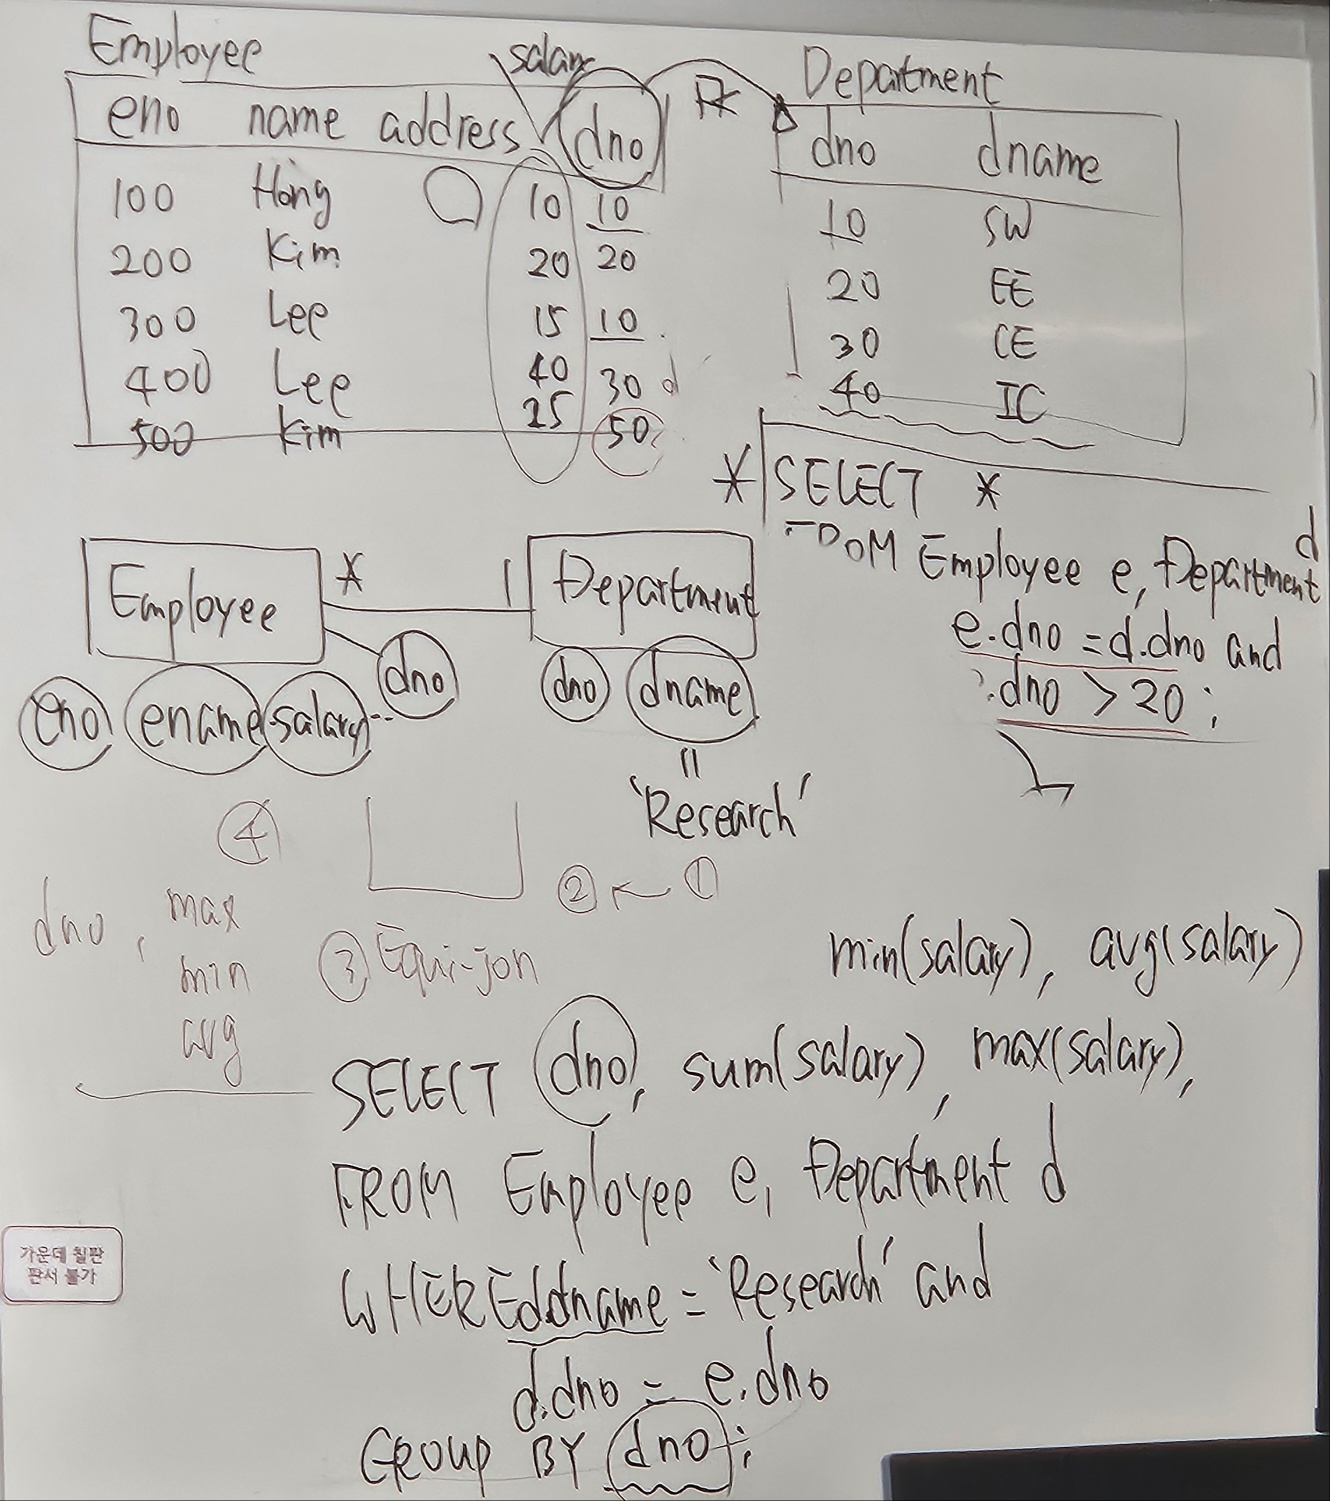 Employee
salary
eno name address dno
100 Hong 10 10
200 Kim 20 20
300 Lee 15 10
400 Lee 40 30 d
500 Kim 25 50
Department
dno dname
10 SW
20 EE
30 CE
40 IC
* SELECT *
FROM Employee e, Department d
e.dno = d.dno and
.dno > 20 ;
Employee * 1 Department
eno ename salary -- dno
dno dname
=
'Research'
④
② ← ①
dno , max
min
avg
③ Equi-jon
min(salary), avg(salary)
SELECT dno, sum(salary), max(salary),
FROM Employee e, Department d
WHERE d.dname = 'Research' and
d.dno = e.dno
GROUP BY dno ;
가운데 칠판
판서 불가